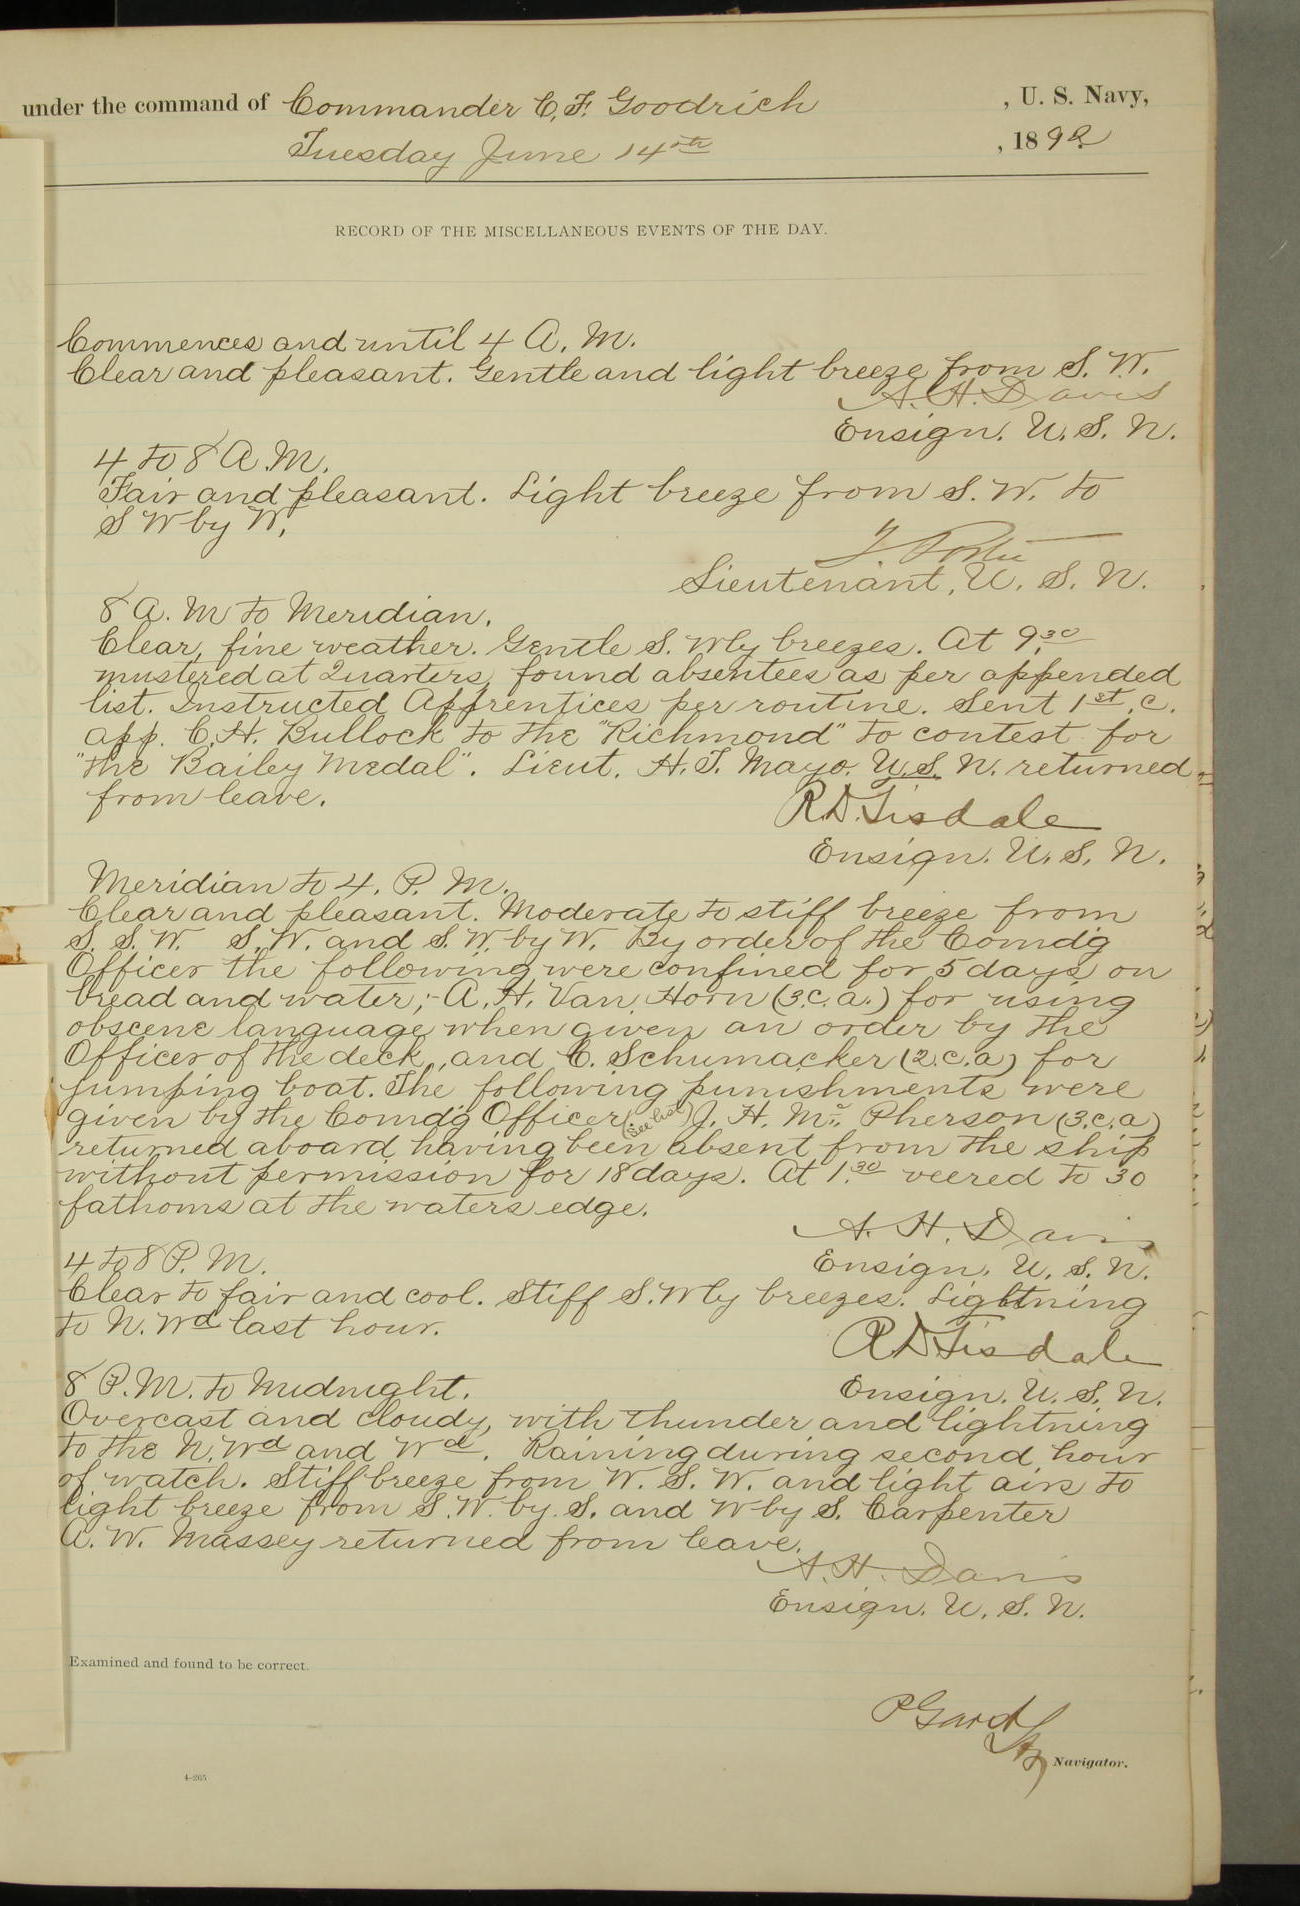 under the command of Commander C. F. Goodrich , U. S. Navy,
Tuesday June 14th , 1892
RECORD OF THE MISCELLANEOUS EVENTS OF THE DAY.
Commences and until 4 A. M.
Clear and pleasant. Gentle and light breeze from S. W.
A. H. Davis
Ensign. U. S. N.
4 to 8 A.M.
Fair and pleasant. Light breeze from S. W. to
S W by W.
Lieutenant, U. S. N.
8 A. M to Meridian.
Clear, fine weather. Gentle S. Wly breezes. At 9.30
mustered at Quarters, found absentees as per appended
list. Instructed Apprentices per routine. Sent 1st. c.
app. C. H. Bullock to the "Richmond" to contest for
"the Bailey Medal". Lieut. H. T. Mayo. U.S. N. returned
from leave.
R.D. Tisdale
Ensign. U. S. N.
Meridian to 4. P. M.
Clear and pleasant. Moderate to stiff breeze from
S. S. W. S. W. and S. W. by W. By order of the Comdg
Officer the following were confined for 5 days on
bread and water;- A. H. Van Horn (3.c.a.) for using
obscene language when given an order by the
Officer of the deck, and C. Schumacker (2.c.a) for
jumping boat. The following punishments were
given by the Comdg Officer: (see list) J. H. Mc Pherson (3.c.a)
returned aboard having been absent from the ship
without permission for 18 days. At 1.30 veered to 30
fathoms at the waters edge.
A. H. Davis
Ensign. U. S. N.
4 to 8 P. M.
Clear to fair and cool. Stiff S.Wly breezes. Lightning
to N. Wd last hour.
R.D. Tisdale
Ensign. U. S. N.
8 P.M. to Midnight.
Overcast and cloudy, with thunder and lightning
to the N. Wd and Wd. Raining during second hour
of watch. Stiff breeze from W. S. W. and light airs to
light breeze from S. W. by S. and W by S. Carpenter
A. W. Massey returned from leave.
A. H. Davis
Ensign. U. S. N.
Examined and found to be correct.
Navigator.
4-265